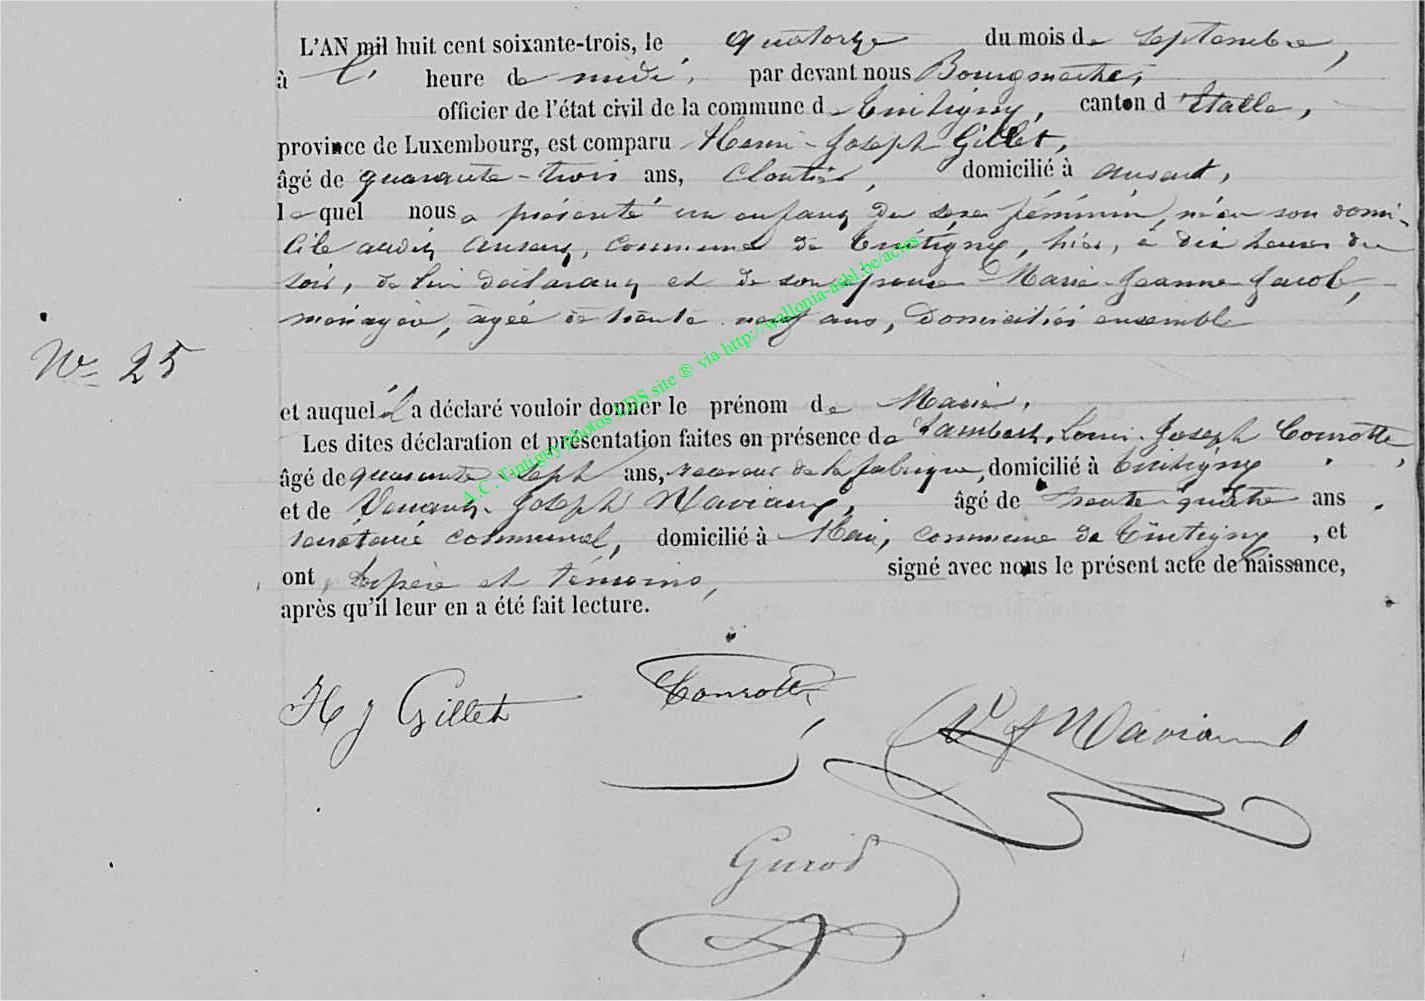 L'AN mil huit cent soixante-trois, le quatorze du mois de septembre,
à l' heure de midi, par devant nous Bourgmestre,
officier de l'état civil de la commune de Tintigny, canton d'Etalle,
province de Luxembourg, est comparu Henri-Joseph Gillet,
âgé de quarante-trois ans, cloutier, domicilié à ansart,
lequel nous a présenté un enfant du sexe féminin, né en son domi-
cile audit ansart, commune de Tintigny, hier, à dix heures du
soir, de lui déclarant et de son épouse Marie-Jeanne Jacob,
ménagère, agée de trente neuf ans, domiciliés ensemble
N° 25
et auquel il a déclaré vouloir donner le prénom de Marie.
Les dites déclaration et présentation faites en présence de Lambert-Louis-Joseph Courotte,
âgé de quarante sept ans, receveur de la fabrique, domicilié à Tintigny
et de Joseph Maviaux, âgé de trente-quatre ans
secrétaire communal, domicilié à commune de Tintigny, et
ont, le père et témoins, signé avec nous le présent acte de naissance,
après qu'il leur en a été fait lecture.
H J Gillet
Courotte
J Maviaux
Gurod
A.C. Tintigny photos LDS site ® via http://wallonia-asbl.be/actes